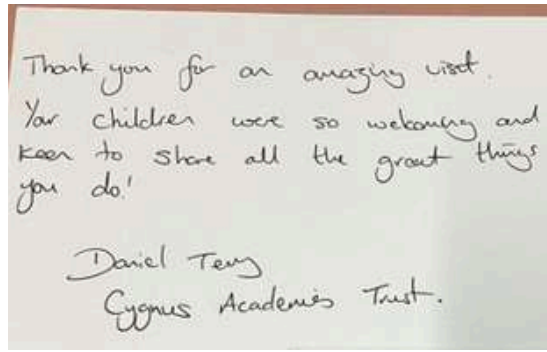 Thank you for an amazing visit.
Your children were so welcoming and
keen to share all the great things
you do!
Daniel Terry
Cygnus Academies Trust.